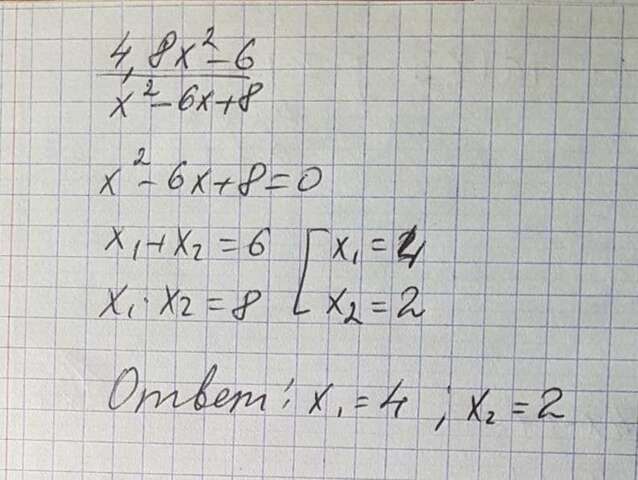 4,8x²-6
x²-6x+8
x²-6x+8=0
x₁+x₂=6 [x₁=4
x₁·x₂=8 [x₂=2
Ответ: x₁=4; x₂=2